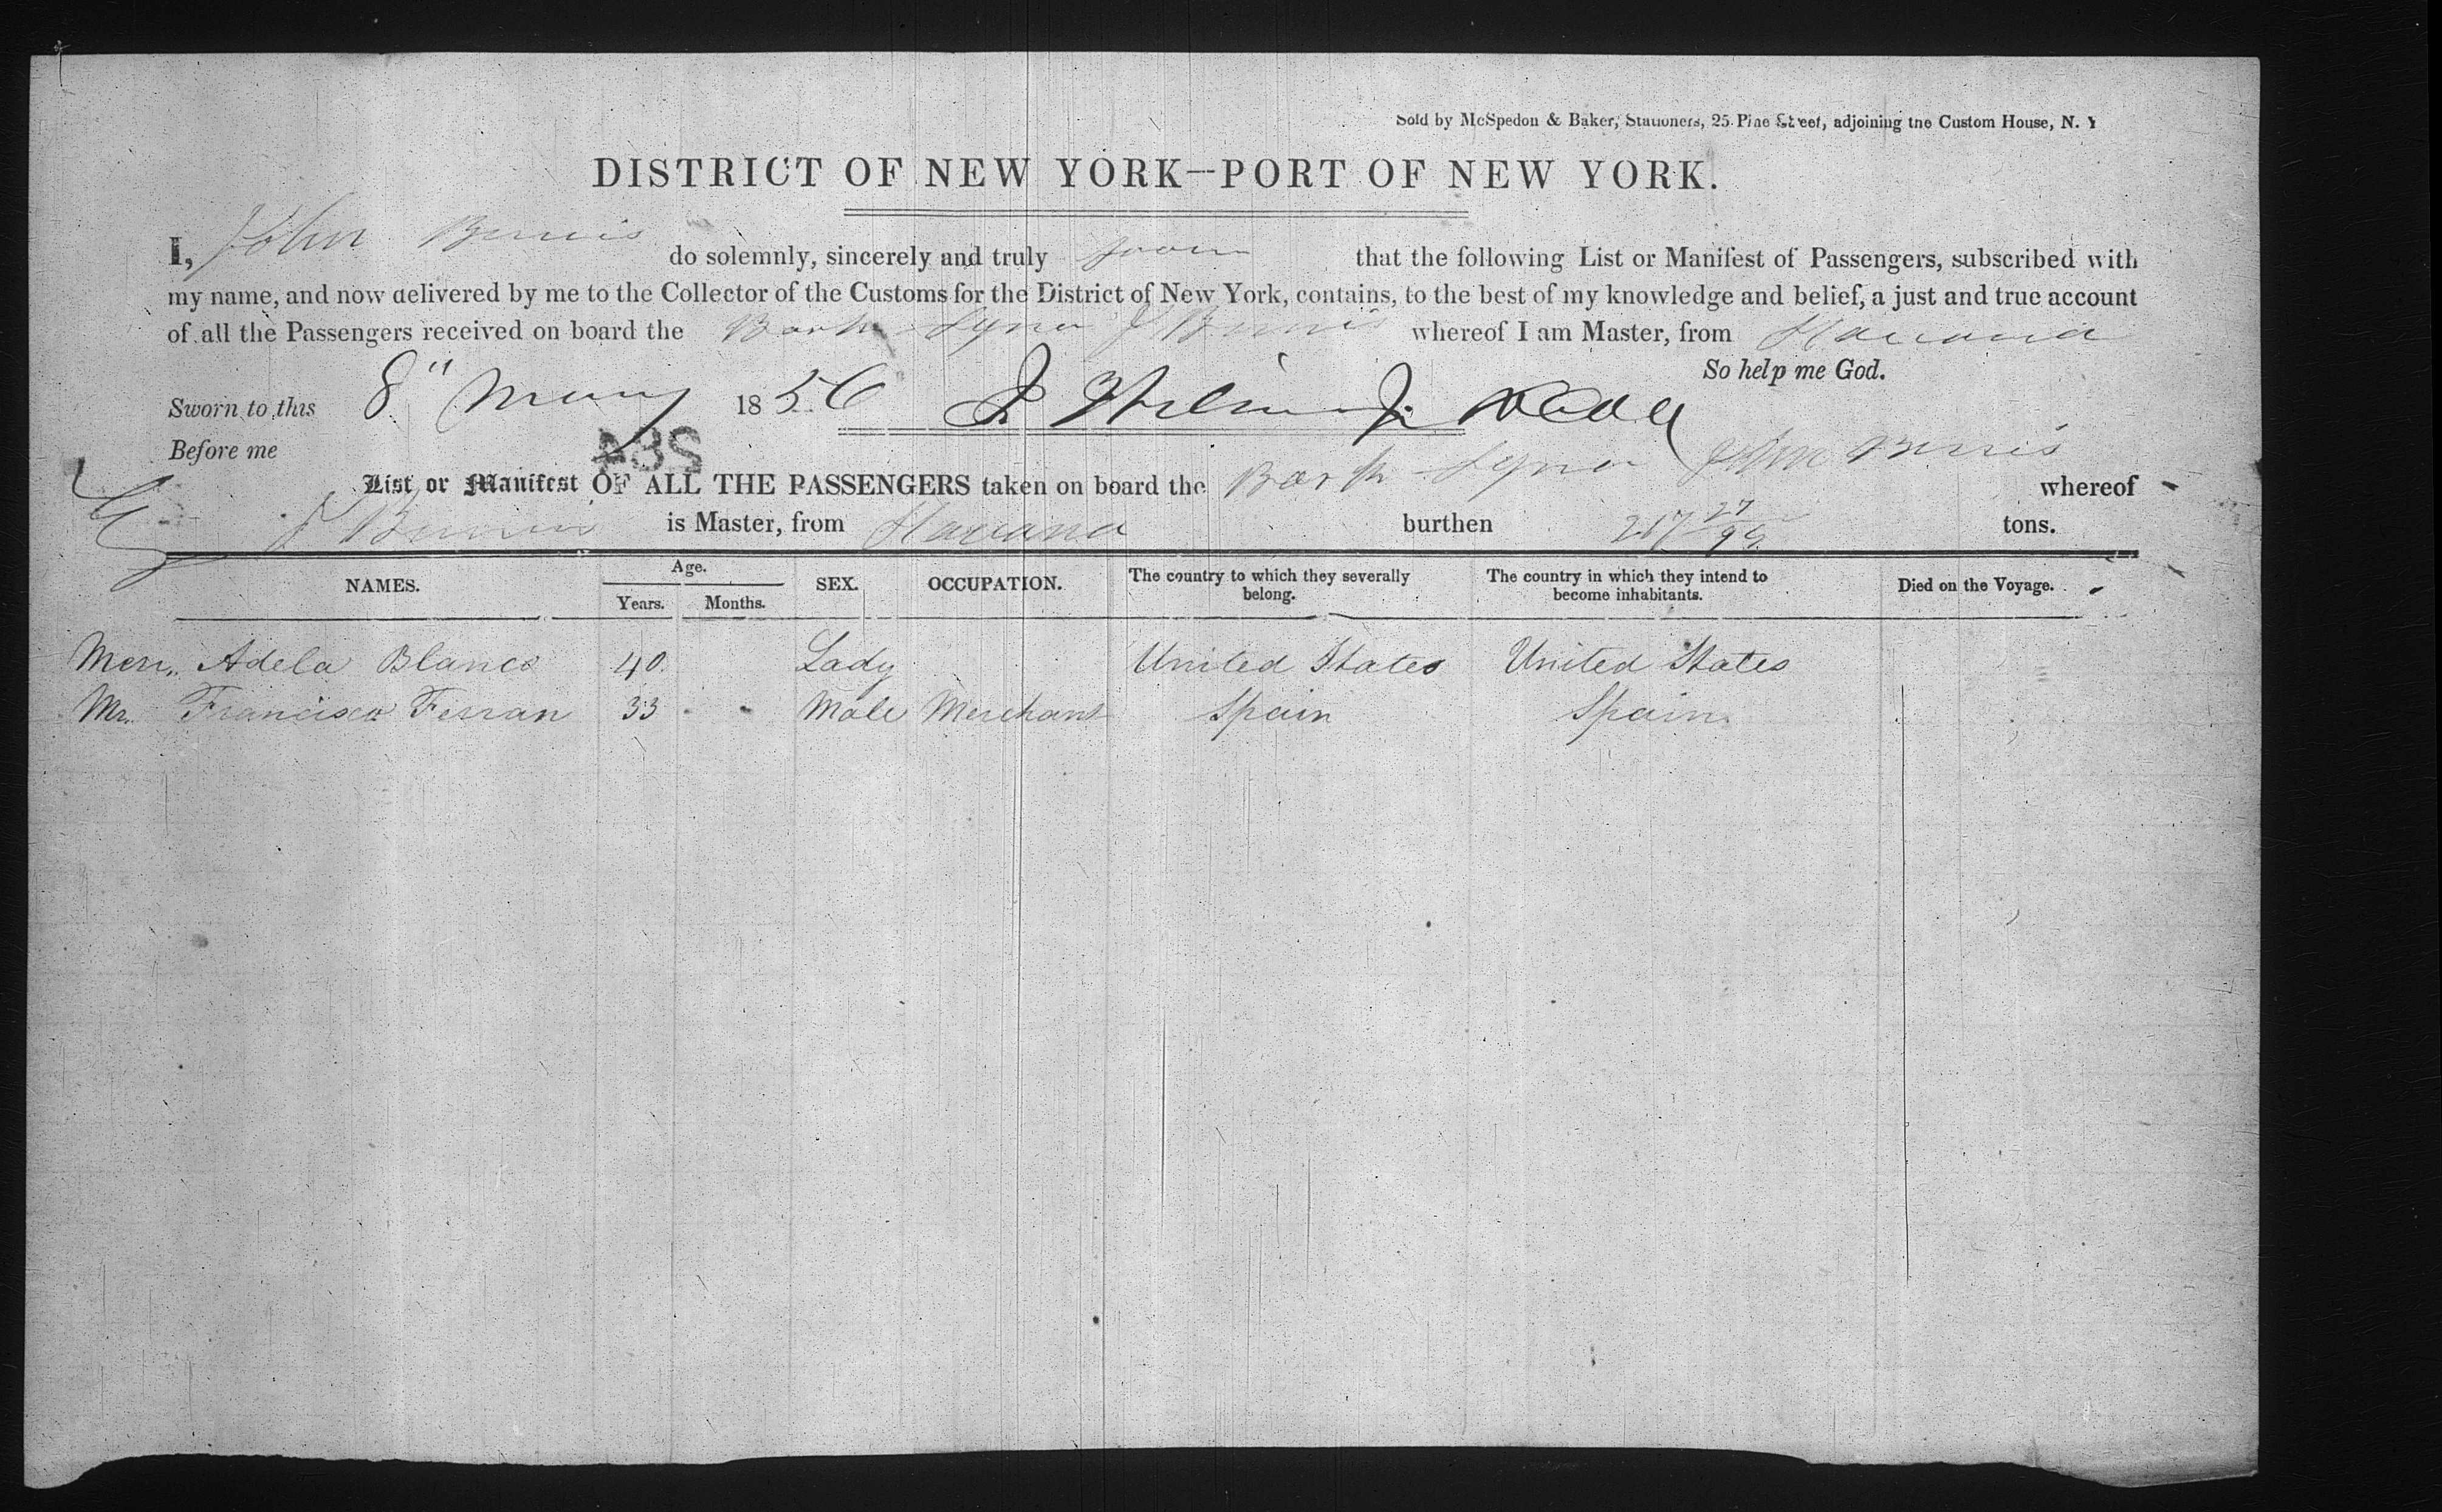 Sold by McSpedon & Baker, Stationers, 25 Pine Street, adjoining the Custom House, N. Y
DISTRICT OF NEW YORK—PORT OF NEW YORK.
I, John do solemnly, sincerely and truly that the following List or Manifest of Passengers, subscribed with
my name, and now delivered by me to the Collector of the Customs for the District of New York, contains, to the best of my knowledge and belief, a just and true account
of all the Passengers received on board the Bark whereof I am Master, from Havana
So help me God.
Sworn to this 8" May 1856
Before me
584
List or Manifest OF ALL THE PASSENGERS taken on board the Bark John whereof
is Master, from Havana burthen 217 27/95 tons.
NAMES. Age. Years. Months. SEX. OCCUPATION. The country to which they severally belong. The country in which they intend to become inhabitants. Died on the Voyage.
Adela Blanco 40 Lady United States United States
Mr. Francisco Ferran 33 Male Merchant Spain Spain